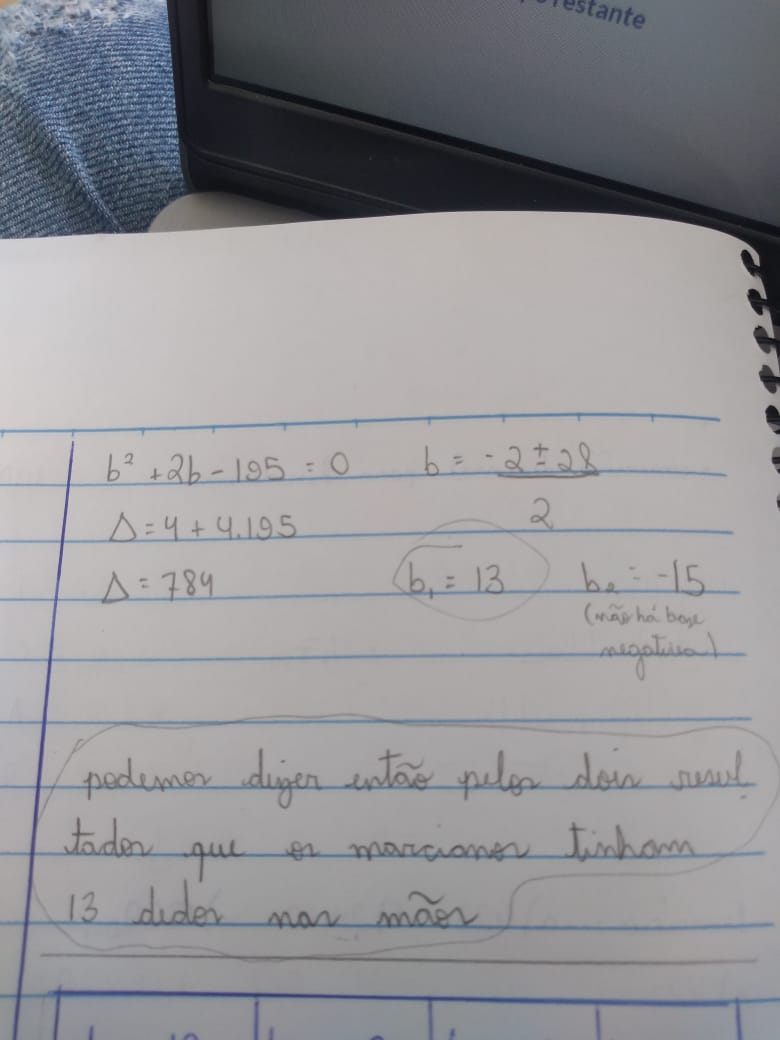 restante
b² + 2b - 195 = 0
b = -2 ± 28
2
Δ = 4 + 4.195
Δ = 784
b₁ = 13
b₂ = -15
(não há base
negativa)
podemos dizer então pelos dois resul
tados que os marcianos tinham
13 dedos nas mãos